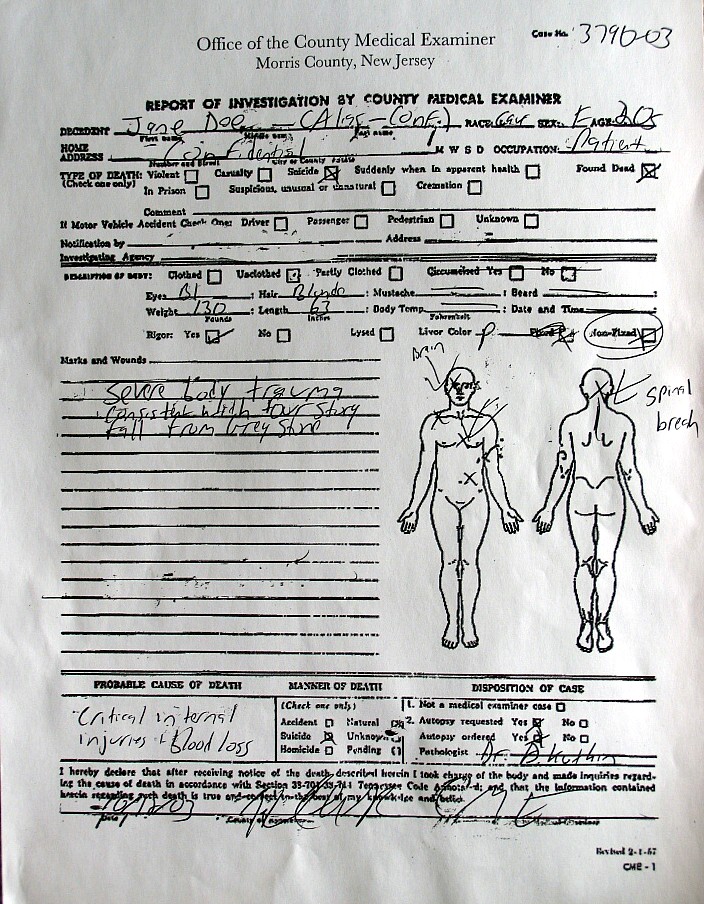 Office of the County Medical Examiner
Case No. 3796-03
Morris County, New Jersey
REPORT OF INVESTIGATION BY COUNTY MEDICAL EXAMINER
DECEDENT Jane Doe (Alias-Conf.) RACE: Cau SEX: F AGE: 20s
First Name Middle Name Last Name
HOME ADDRESS Confidential M W S D OCCUPATION: Patient
Number and Street City or County State
TYPE OF DEATH: Violent Casualty Suicide Suddenly when in apparent health Found Dead
(Check one only) In Prison Suspicious, unusual or unnatural Cremation
Comment
If Motor Vehicle Accident Check One: Driver Passenger Pedestrian Unknown
Notification by Address
Investigating Agency
DESCRIPTION OF BODY: Clothed Unclothed Partly Clothed Circumcised Yes No
Eyes Bl Hair Blonde Mustache Beard
Weight 130 Length 63 Body Temp. Date and Time
Pounds Inches Fahrenheit
Rigor: Yes No Lysed Livor Color P Fixed Non-Fixed
Brain
Marks and Wounds
Severe body trauma
consistent with four story
fall from Grey Stone
spinal
break
PROBABLE CAUSE OF DEATH MANNER OF DEATH DISPOSITION OF CASE
Critical internal
injuries + Blood loss
(Check one only)
Accident Natural
Suicide Unknown
Homicide Pending
1. Not a medical examiner case
2. Autopsy requested Yes No
Autopsy ordered Yes No
Pathologist Dr. B.
I hereby declare that after receiving notice of the death described herein I took charge of the body and made inquiries regard-
ing the cause of death in accordance with Section 38-701-38-711 Tennessee Code Annotated; and that the information contained
herein regarding such death is true and correct to the best of my knowledge and belief.
Date County of Medical Examiner
Revised 2-1-67
CME - 1